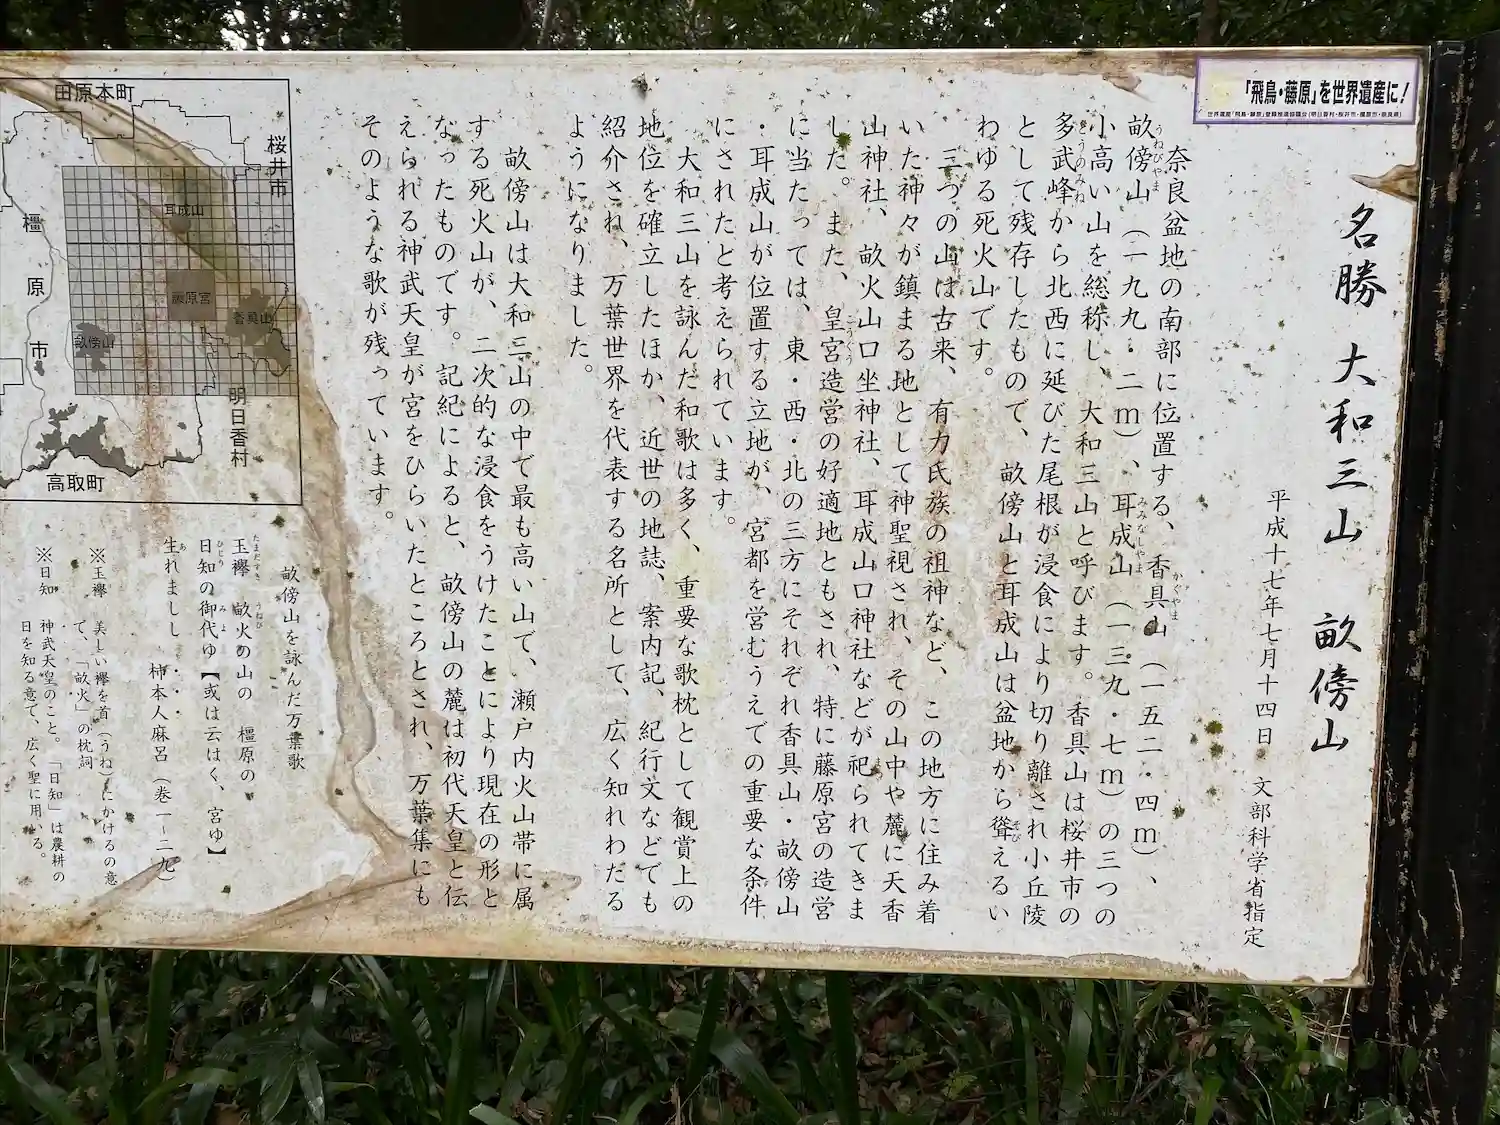 「飛鳥・藤原」を世界遺産に!
名勝 大和三山 畝傍山
平成十七年七月十四日 文部科学省指定
奈良盆地の南部に位置する、香具山（一五二・四m）、
畝傍山（一九九・二m）、耳成山（一三九・七m）の三つの
小高い山を総称し、大和三山と呼びます。香具山は桜井市の
多武峰から北西に延びた尾根が浸食により切り離され小丘陵
として残存したもので、畝傍山と耳成山は盆地から聳えるい
わゆる死火山です。
三つの山は古来、有力氏族の祖神など、この地方に住み着
いた神々が鎮まる地として神聖視され、その山中や麓に天香
山神社、畝火山口坐神社、耳成山口神社などが祀られてきま
した。また、皇宮造営の好適地ともされ、特に藤原宮の造営
に当たっては、東・西・北の三方にそれぞれ香具山・畝傍山
・耳成山が位置する立地が、宮都を営むうえでの重要な条件
にされたと考えられています。
大和三山を詠んだ和歌は多く、重要な歌枕として観賞上の
地位を確立したほか、近世の地誌、案内記、紀行文などでも
紹介され、万葉世界を代表する名所として、広く知れわたる
ようになりました。
畝傍山は大和三山の中で最も高い山で、瀬戸内火山帯に属
する死火山が、二次的な浸食をうけたことにより現在の形と
なったものです。記紀によると、畝傍山の麓は初代天皇と伝
えられる神武天皇が宮をひらいたところとされ、万葉集にも
そのような歌が残っています。
田原本町
桜井市
橿原市
耳成山
藤原宮
香具山
畝傍山
明日香村
高取町
畝傍山を詠んだ万葉歌
玉襷 畝火の山の 橿原の
日知の御代ゆ【或は云はく、宮ゆ】
生れましし・・・
柿本人麻呂（巻一―二九）
※玉襷 美しい襷を首（うね）にかけるの意
て、「畝火」の枕詞
※日知 神武天皇のこと。「日知」は農耕の
日を知る意で、広く聖に用いる。